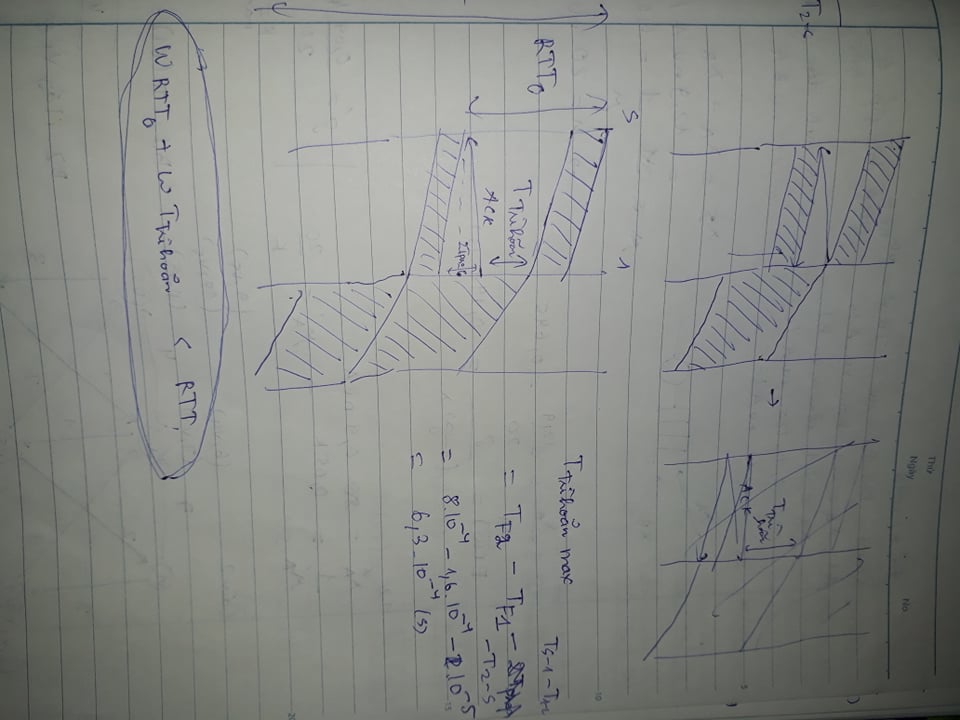 Thứ
Ngày
No
T2-S
T Trì hoãn
ACK
5
S
1
10
RTT0
T Trì hoãn
ACK
T Trì hoãn max
TS-1 - T
= TF2 - TF1
- T2-S
= 8.10⁻⁴ - 1,6.10⁻⁴ - .10⁻⁵
= 6,3.10⁻⁴ (s)
15
20
W RTT0 + W T Trì hoãn < RTT1